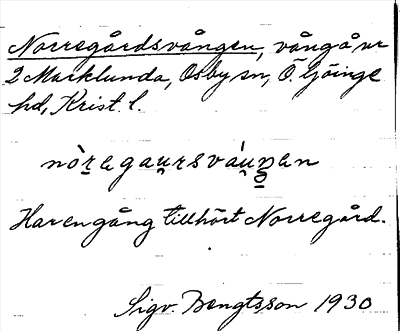 Norregårdsvången, vång å nr
2 Marklunda, Osby sn, Ö. Göinge
hd, Krist. l.
Har en gång tillhört Norregård.
Sigv. Bengtsson 1930